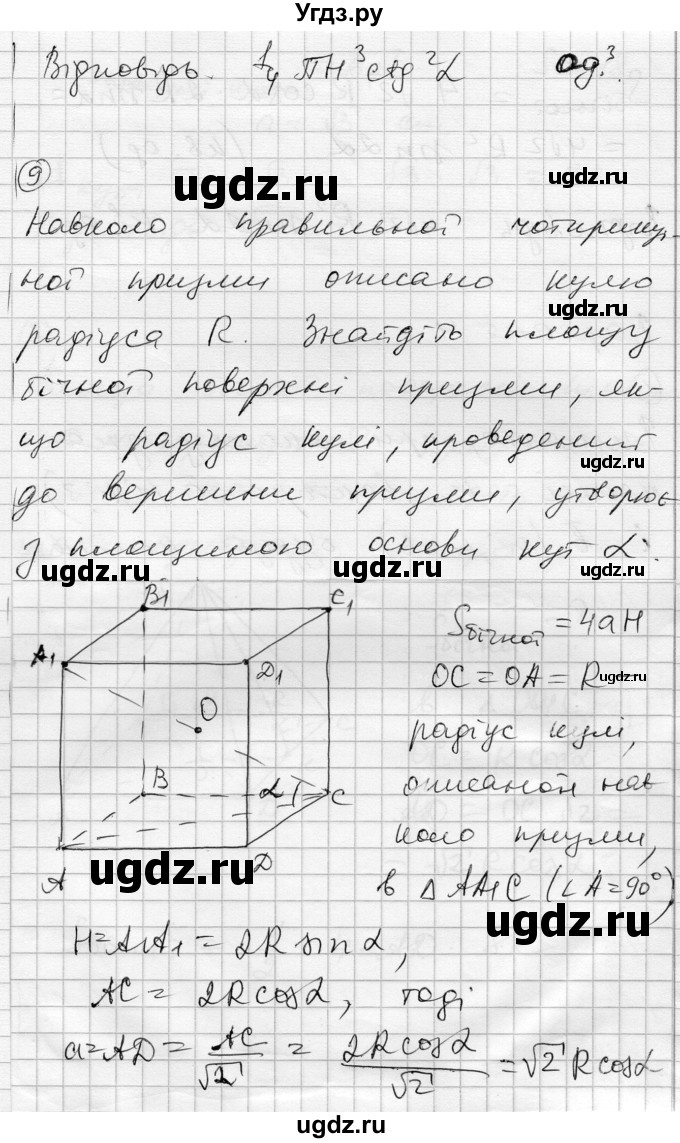 Угдз.ру
Відповідь. 1/4 ПH³ctg²α од³.
9
ugdz.ru
Навколо правильної чотирикут-
ної призми описано кулю
ugdz.ru
радіуса R. Знайдіть площу
бічної поверхні призми, як-
що радіус кулі, проведений
ugdz.ru
до вершини призми, утворює
з площиною основи кут α.
ugdz.ru
ugdz.ru
B₁ C₁
A₁ D₁
O
B α C
A D
Sбічної = 4aH
OC = OA = R
ugdz.ru
радіус кулі,
описаної нав
коло призми,
ugdz.ru
в Δ AA₁C (∠A = 90°)
ugdz.ru
H = AA₁ = 2R sin α,
AC = 2R cos α, тоді
a = AD = AC/√2 = 2R cos α/√2 = √2 R cos α
ugdz.ru